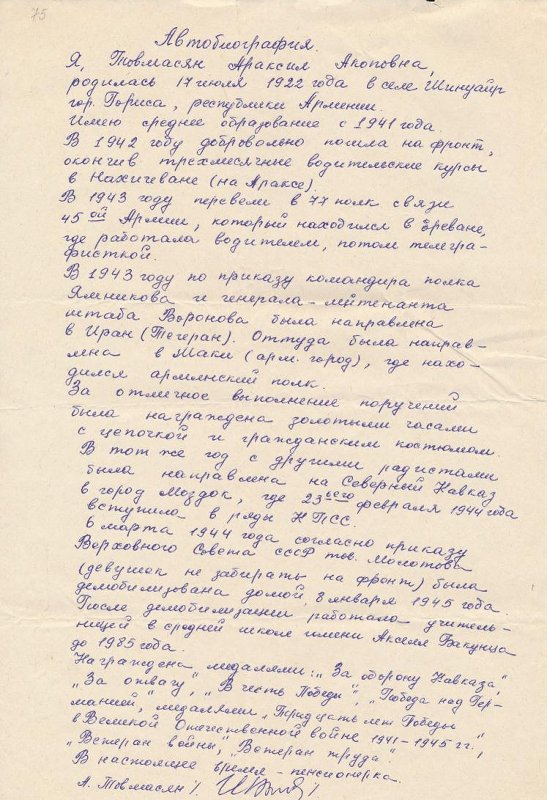 75
Автобиография.
Я, Товмасян Араксил Акоповна,
родилась 17 июля 1922 года в селе Шинуайр
гор. Гориса, республики Армении.
Имею среднее образование с 1941 года.
В 1942 году добровольно пошла на фронт,
окончив трехмесячные водительские курсы
в Нахичеване (на Араксе).
В 1943 году перевели в 77 полк связи
45ой Армии, который находился в Ереване,
где работала водителем, потом телегра-
фисткой.
В 1943 году по приказу командира полка
Ямникова и генерала-лейтенанта
штаба Воронова была направлена
в Иран (Тегеран). Оттуда была направ-
лена в Маки (арм. город), где нахо-
дился армянский полк.
За отличное выполнение поручений
была награждена золотыми часами
с цепочкой и гражданским костюмом.
В тот же год с другими радистами
была направлена на Северный Кавказ
в город Моздок, где 23его февраля 1944 года
вступила в ряды КПСС.
6 марта 1944 года согласно приказу
Верховного Совета СССР тов. Молотова
(девушек не забирать на фронт) была
демобилизована домой, 8 января 1945 года.
После демобилизации работала учитель-
ницей в средней школе имени Акселя Бакунца
до 1985 года.
Награждена медалями: „За оборону Кавказа",
„За отвагу", „В честь Победы", „Победа над Гер-
манией", медалями „Тридцать лет Победы
в Великой Отечественной войне 1941-1945 гг.",
„Ветеран войны", „Ветеран труда".
В настоящее время - пенсионерка.
А. Товмасян /